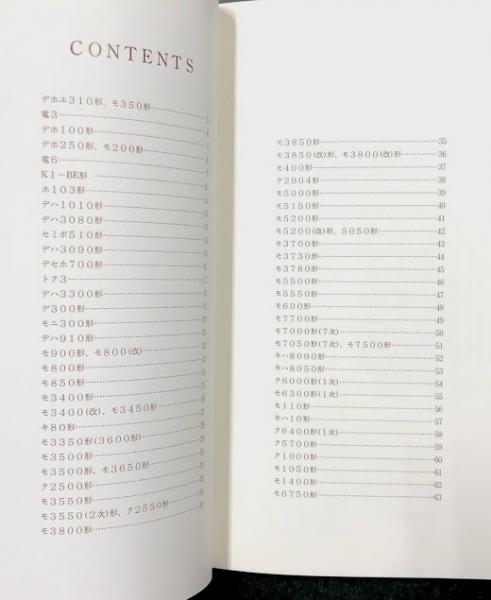 CONTENTS
デホユ310形、モ350形 5
電3 6
デホ100形 7
デホ250形、モ200形 8
電6 9
K1－BE形 10
ホ103形 11
デハ1010形 12
デハ3080形 13
セミボ510形 14
デハ3090形 15
デセホ700形 16
トク3 17
デハ3300形 18
デ300形 19
モニ300形 20
デハ910形 21
モ900形、モ800(改) 22
モ800形 23
モ850形 24
モ3400形 25
モ3400(改)、モ3450形 26
キ80形 27
モ3350形(3600形) 28
モ3500形 29
モ3500形、モ3650形 30
ク2500形 31
モ3550形 32
モ3550(2次)形、ク2550形 33
モ3800形 34
モ3850形 35
モ3850(改)形、モ3800(改)形 36
モ400形 37
ク2904形 38
モ5000形 39
モ5150形 40
モ5200形 41
モ5200(改)形、5050形 42
モ3700形 43
モ3730形 44
モ3780形 45
モ5500形 46
モ5550形 47
モ600形 48
モ7700形 49
モ7000形(7次) 50
モ7050形(7次)、モ7500形 51
キハ8000形 52
キハ8050形 53
ク6000形(1次) 54
モ6300形(1次) 55
モ110形 56
キハ10形 57
ク6400形(1次) 58
ク5700形 59
ク1000形 60
モ1050形 61
モ1400形 62
モ6750形 63